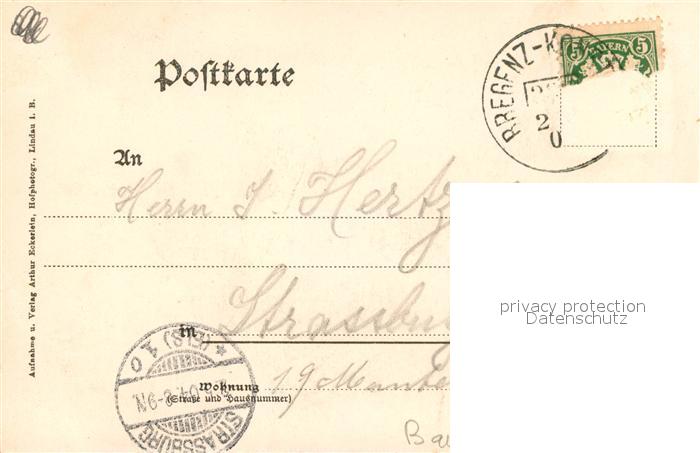 Postkarte
BREGENZ-KO
5 BAYERN 5
2
0
An
Herrn J. Hertz
privacy protection
Datenschutz
in Strassbu
Wohnung 19
(Straße und Hausnummer)
STRASSBURG (ELS) * 10
8-9N.
Ba
Aufnahme u. Verlag Arthur Eckerlein, Hofphotogr., Lindau i. B.